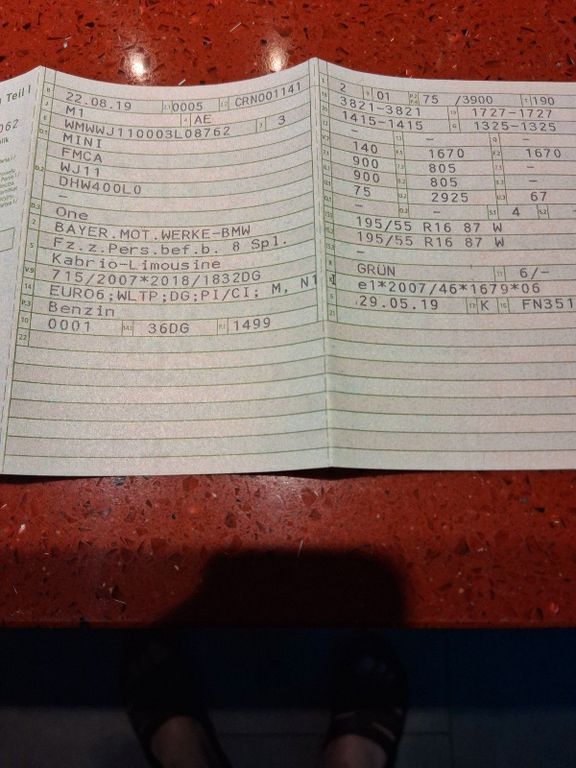 Teil I
062
22.08.19 0005 CRN001141
M1 AE
WMWWJ110003L08762 3
MINI
FMCA
WJ11
DHW400L0
–
One
BAYER.MOT.WERKE-BMW
Fz.z.Pers.bef.b. 8 Spl.
Kabrio-Limousine
715/2007*2018/1832DG
EURO6;WLTP;DG;PI/CI; M, N1
Benzin
0001 36DG 1499
2 01 75 /3900 190
3821-3821 1727-1727
1415-1415 1325-1325
– – –
140 1670 1670
900 805 –
900 805 –
75 2925 67
– – 4 –
195/55 R16 87 W
195/55 R16 87 W
–
GRÜN 6/–
e1*2007/46*1679*06
29.05.19 K FN351